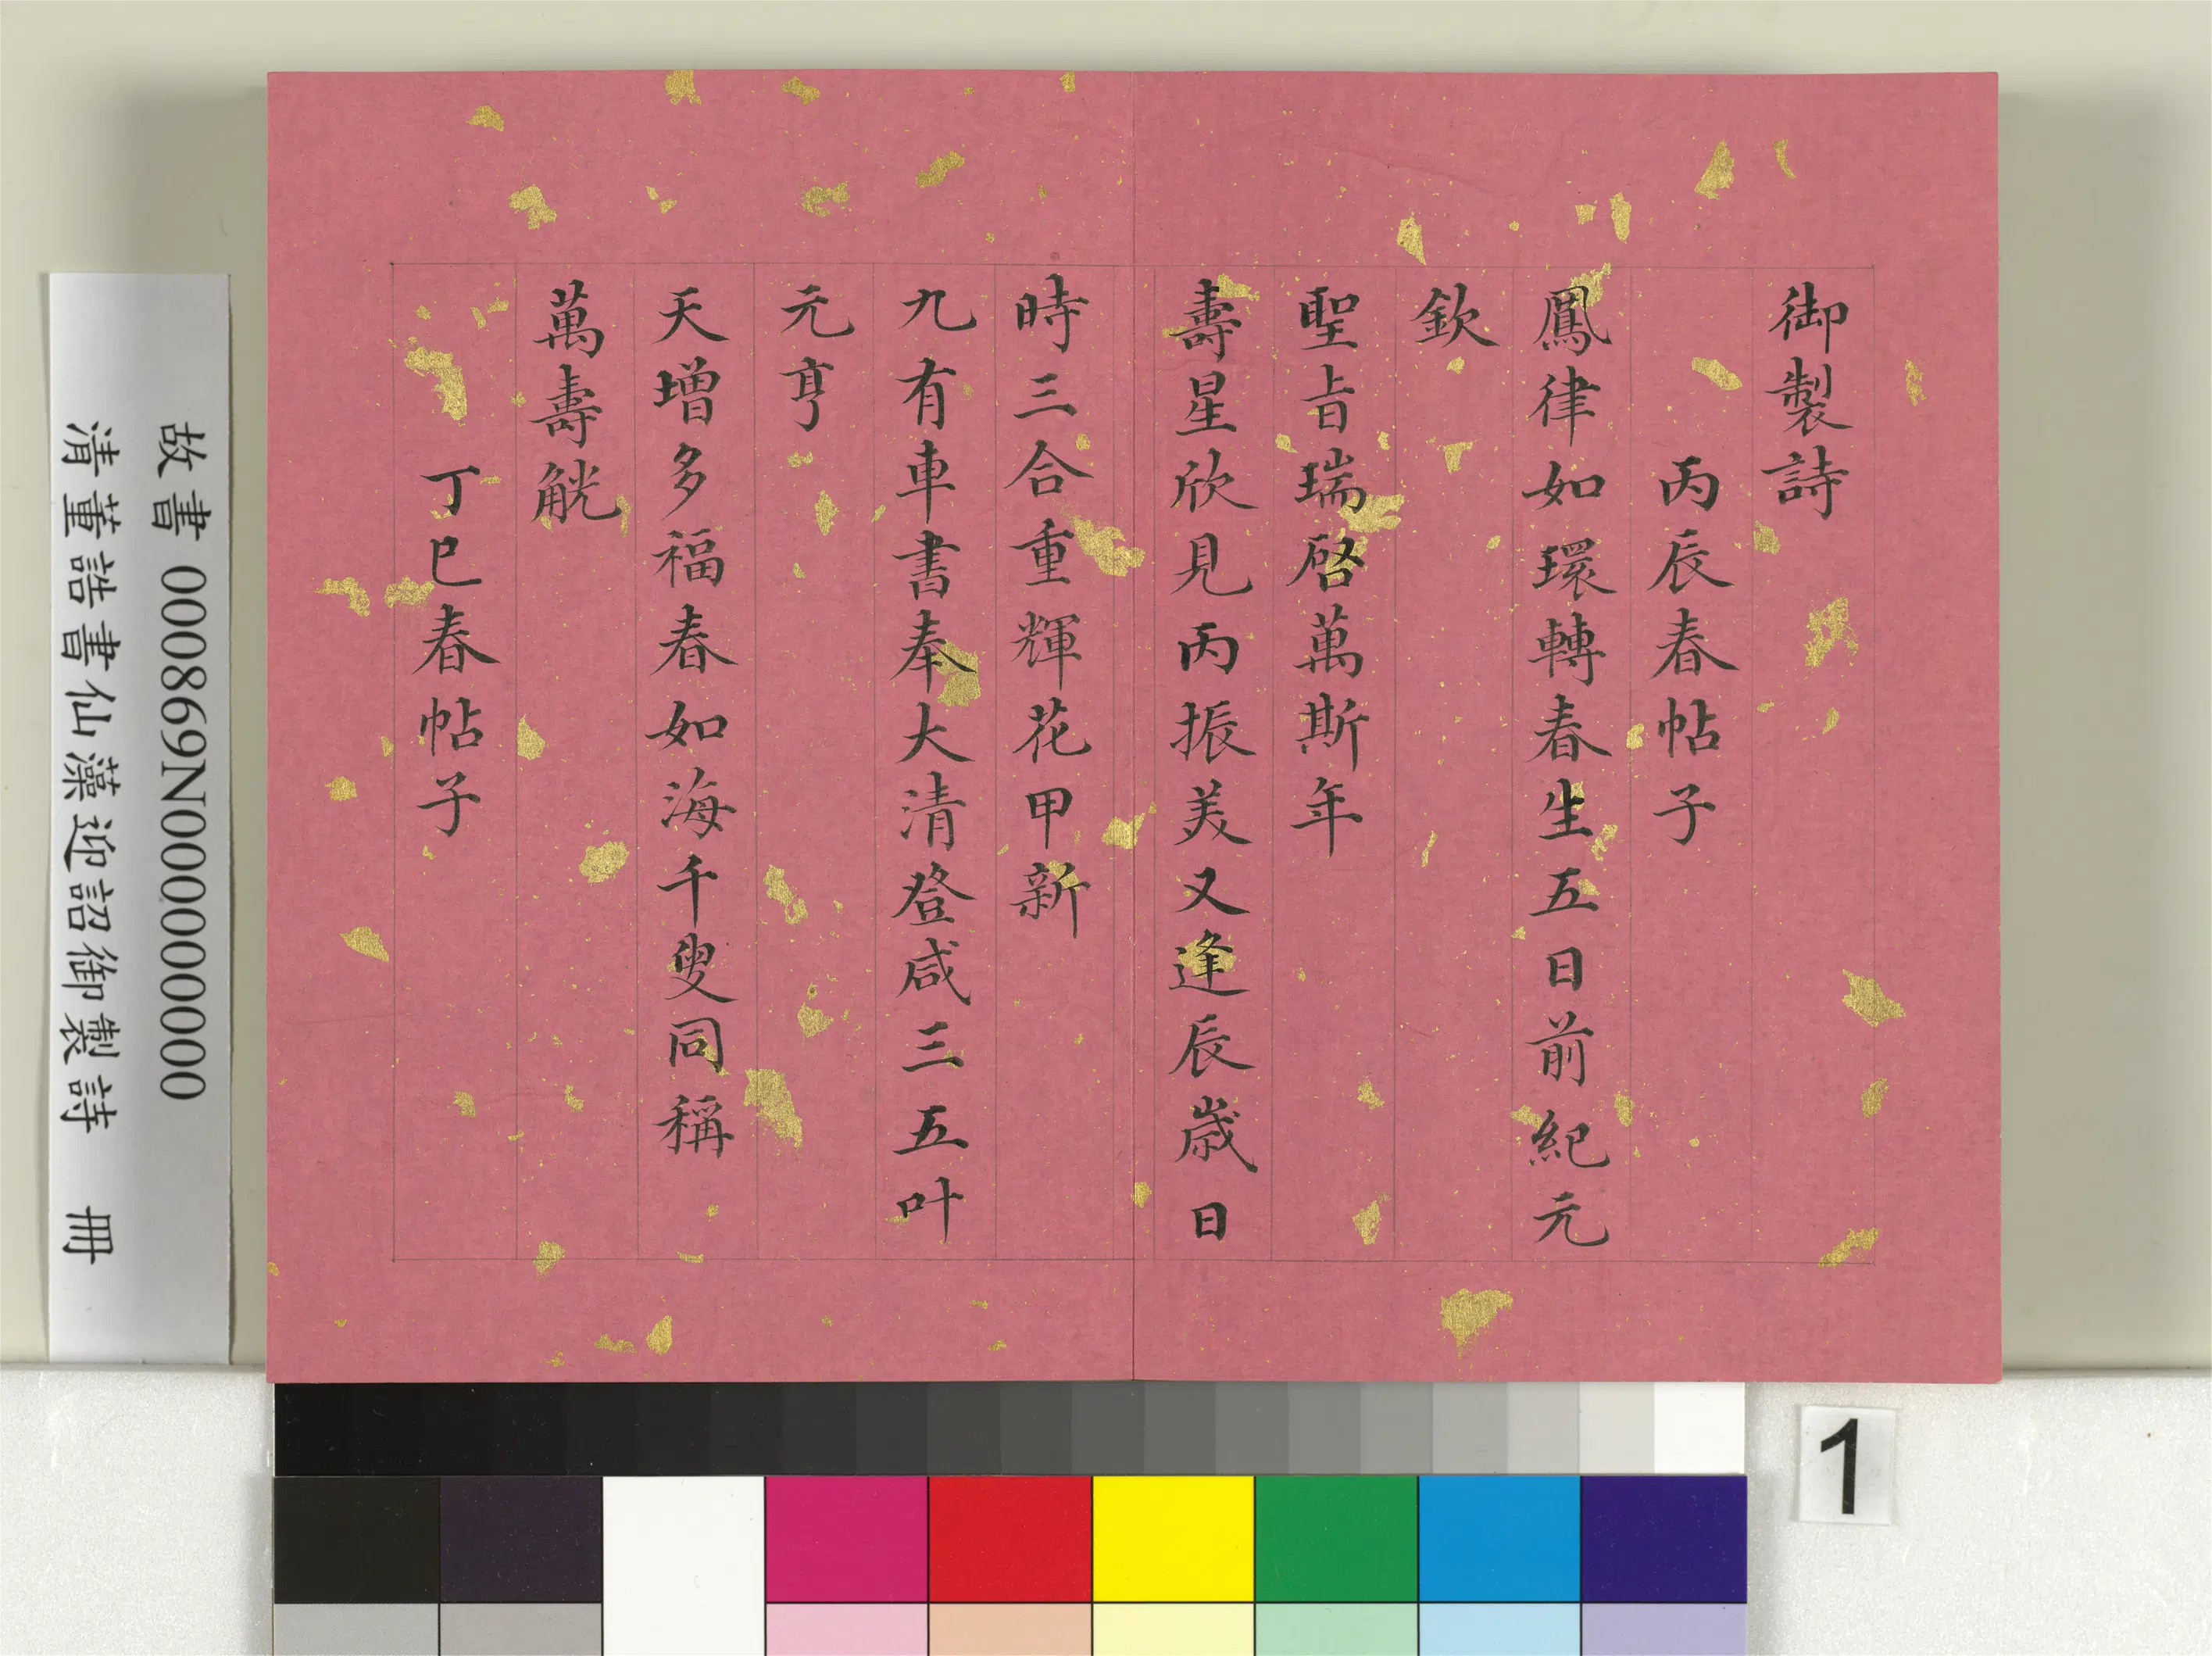 御製詩
丙辰春帖子
鳳律如環轉春生五日前紀元
欽
聖旨瑞啓萬斯年
壽星欣見丙振美又逢辰歲日
時三合重輝花甲新
九有車書奉大清登咸三五叶
元亨
天增多福春如海千叟同稱
萬壽觥
丁巳春帖子
故書 000869N000000000
清董誥書仙藻迎詔御製詩 冊
1